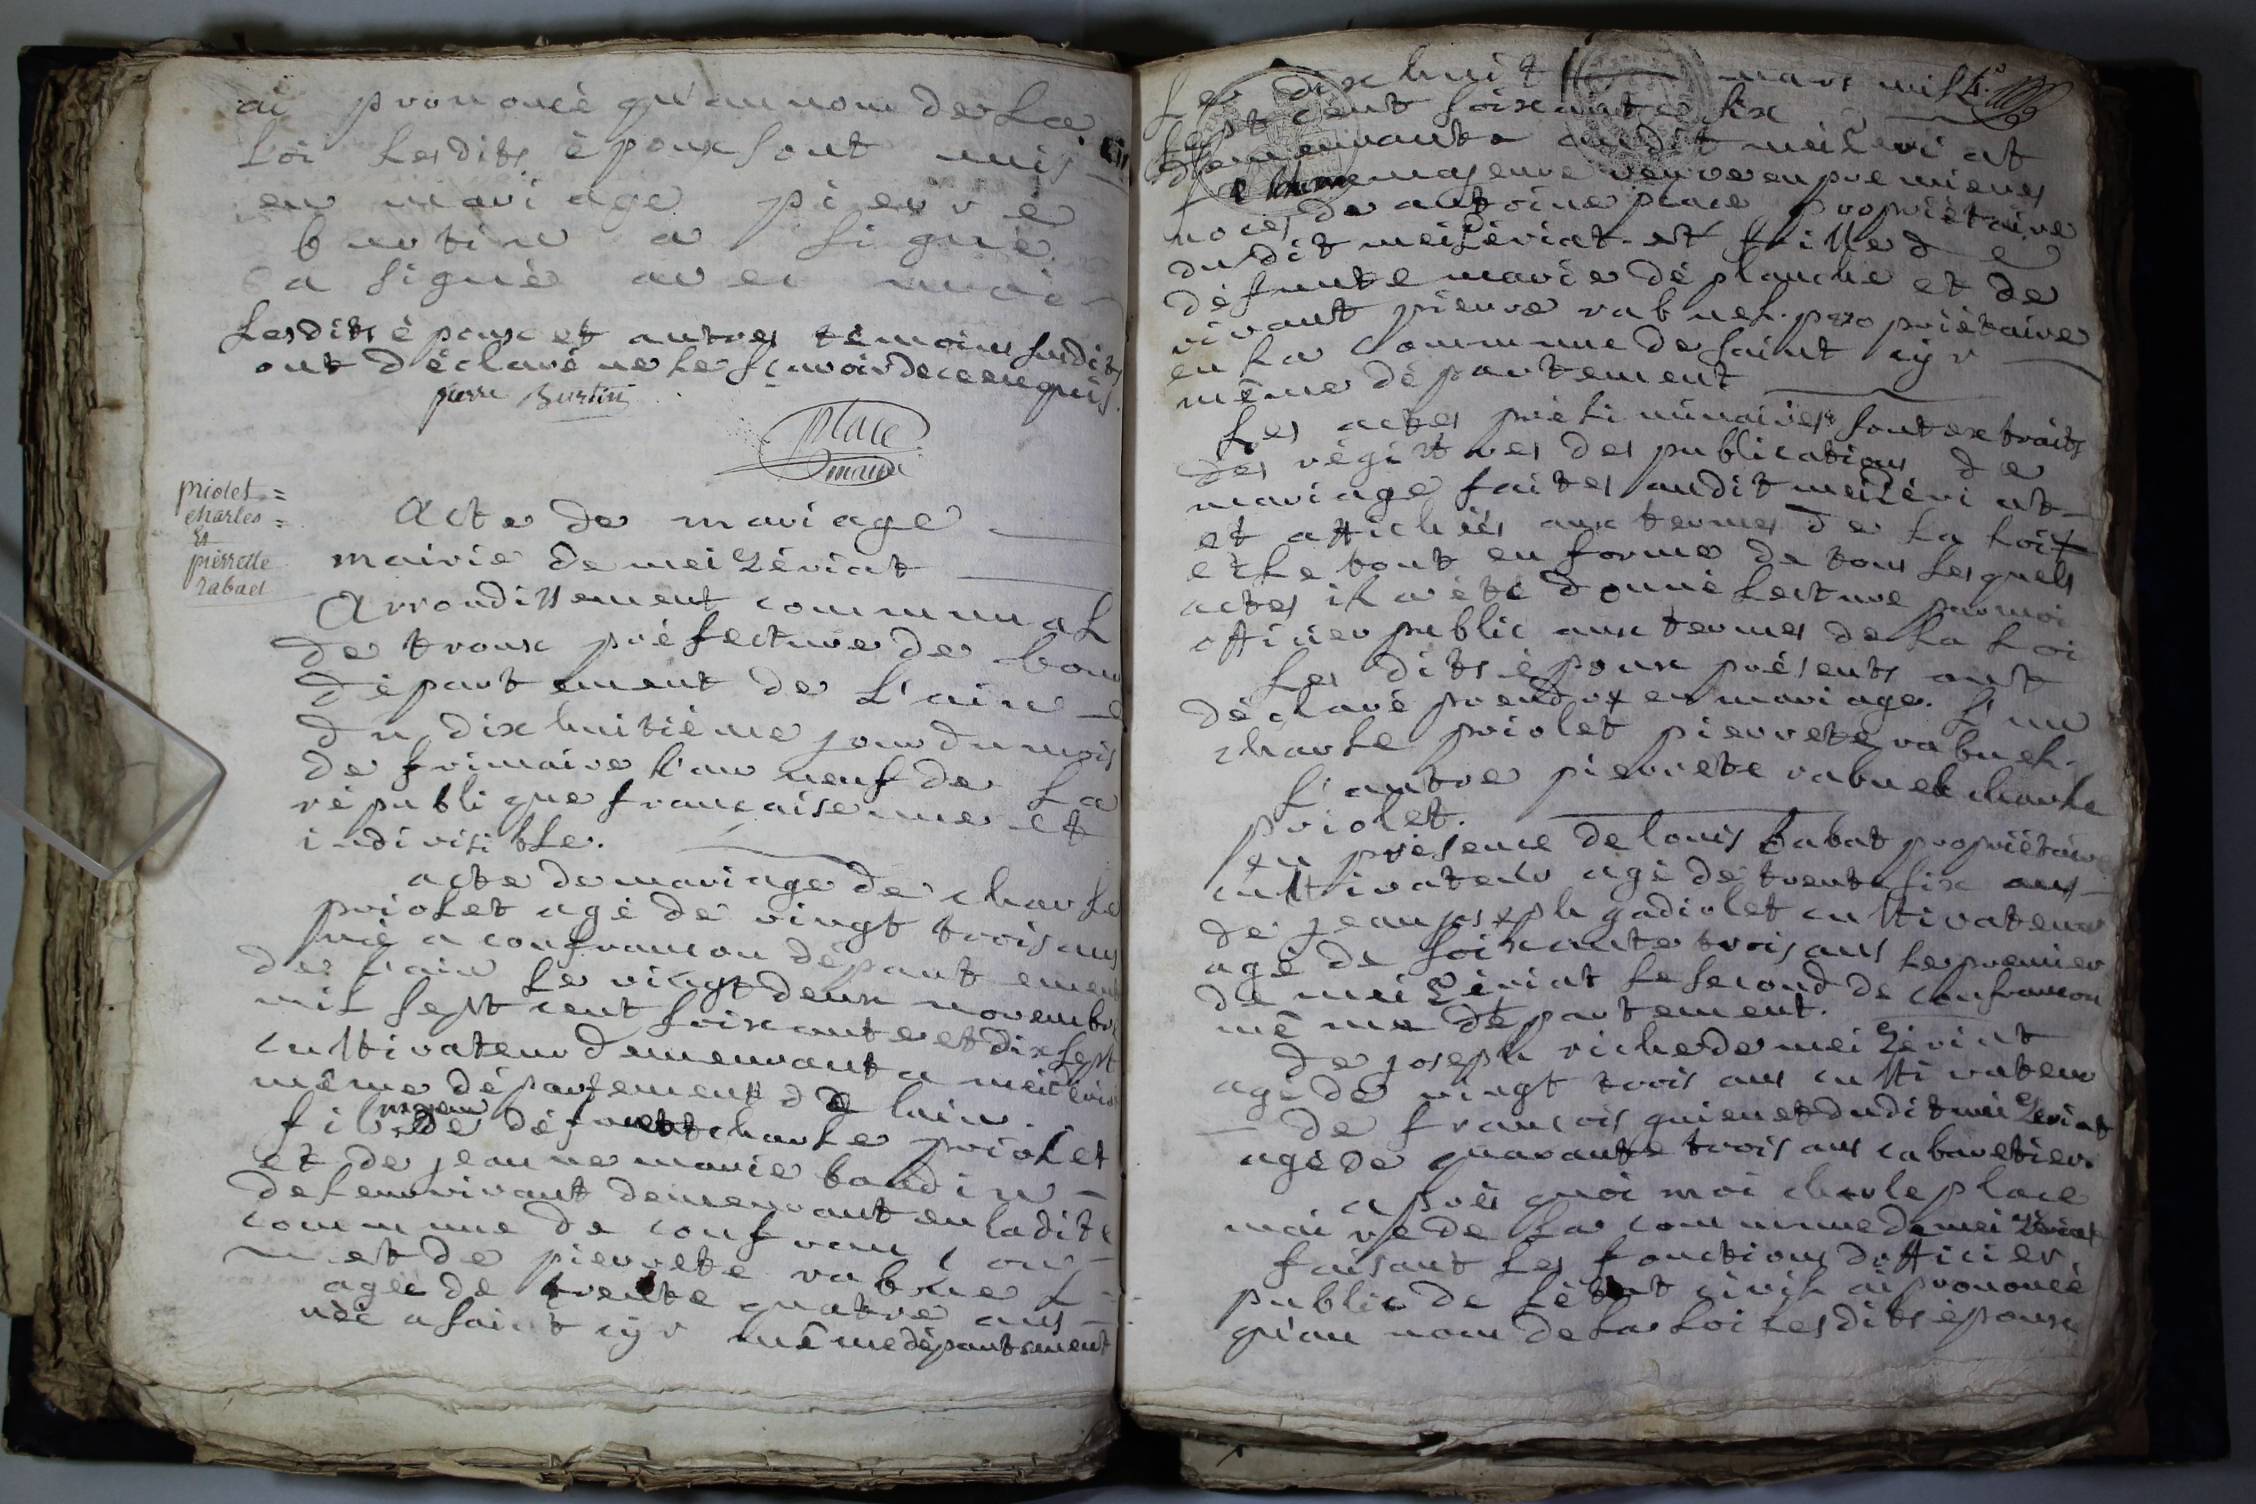 ai prononcé qu'au nom de La
Loi Lesdits époux sont unis
en mariage pierre
burtin a signé
a signé avec moi
Lesdits époux et autres témoins susdits
ont déclaré ne Le sçavoir de ce enquis.
pierre Burtin
place
maire
priolet =
charles =
Et
pierrette
rabuel
Acte de mariage
mairie de meizériat
Arrondissement communal
de troux préfecture de bour
département de L'ain
du dix huitième jour du mois
de frimaire L'an neuf de La
république francaise une et
indivisible.
acte de mariage de charle
priolet agé de vingt trois ans
né a confrancon département
de L'ain Le vingt deux novembre
mil sept cent soixante et dix sept
cultivateur demeurant a meizéria
même département de lain.
fils majeur de défunt charle priolet
et de jeanne marie baudin
de Leur vivant demeurant en ladite
commune de confrancon
et de pierrete rabuel
agée de trente quatre ans
née a saint cyr même département
Le dix huit mars mil
sept cent soixante six
demeurante audit meizériat
majeure veuve en premieres
noces de antoine place propriétaire
dudit meizériat et fille de
défunte marie déplanche et de
vivant pierre rabuel propriétaire
en La commune de saint cyr
même département
Les actes préliminaires sont extraits
des régistres des publications de
mariage faites audit meizériat
et affichés aux termes de La Loi
et Le tout en forme de tous Lesquels
actes il a été donné Lecture par moi
officier public aux termes de La Loi
Les dits époux présents ont
déclaré prendre en mariage. L'un
charle priolet pierrete rabuel.
L'autre pierrete rabuel charle
priolet.
En présence de louis babat propriétaire
cultivateur agé de trente six ans
de jean joseph gadiolet cultivateur
agé de soixante trois ans Le premier
de meizériat Le second de confrancon
même département.
de joseph riche de meizériat
agé de vingt trois ans cultivateur
de francois guienet dudit meizériat
agé de quarante trois ans cabaretier.
après quoi moi charle place
maire de La commune de meizériat
faisant Les fonctions d'officier
public de L'état civil ai prononcé
qu'au nom de La Loi Lesdits époux